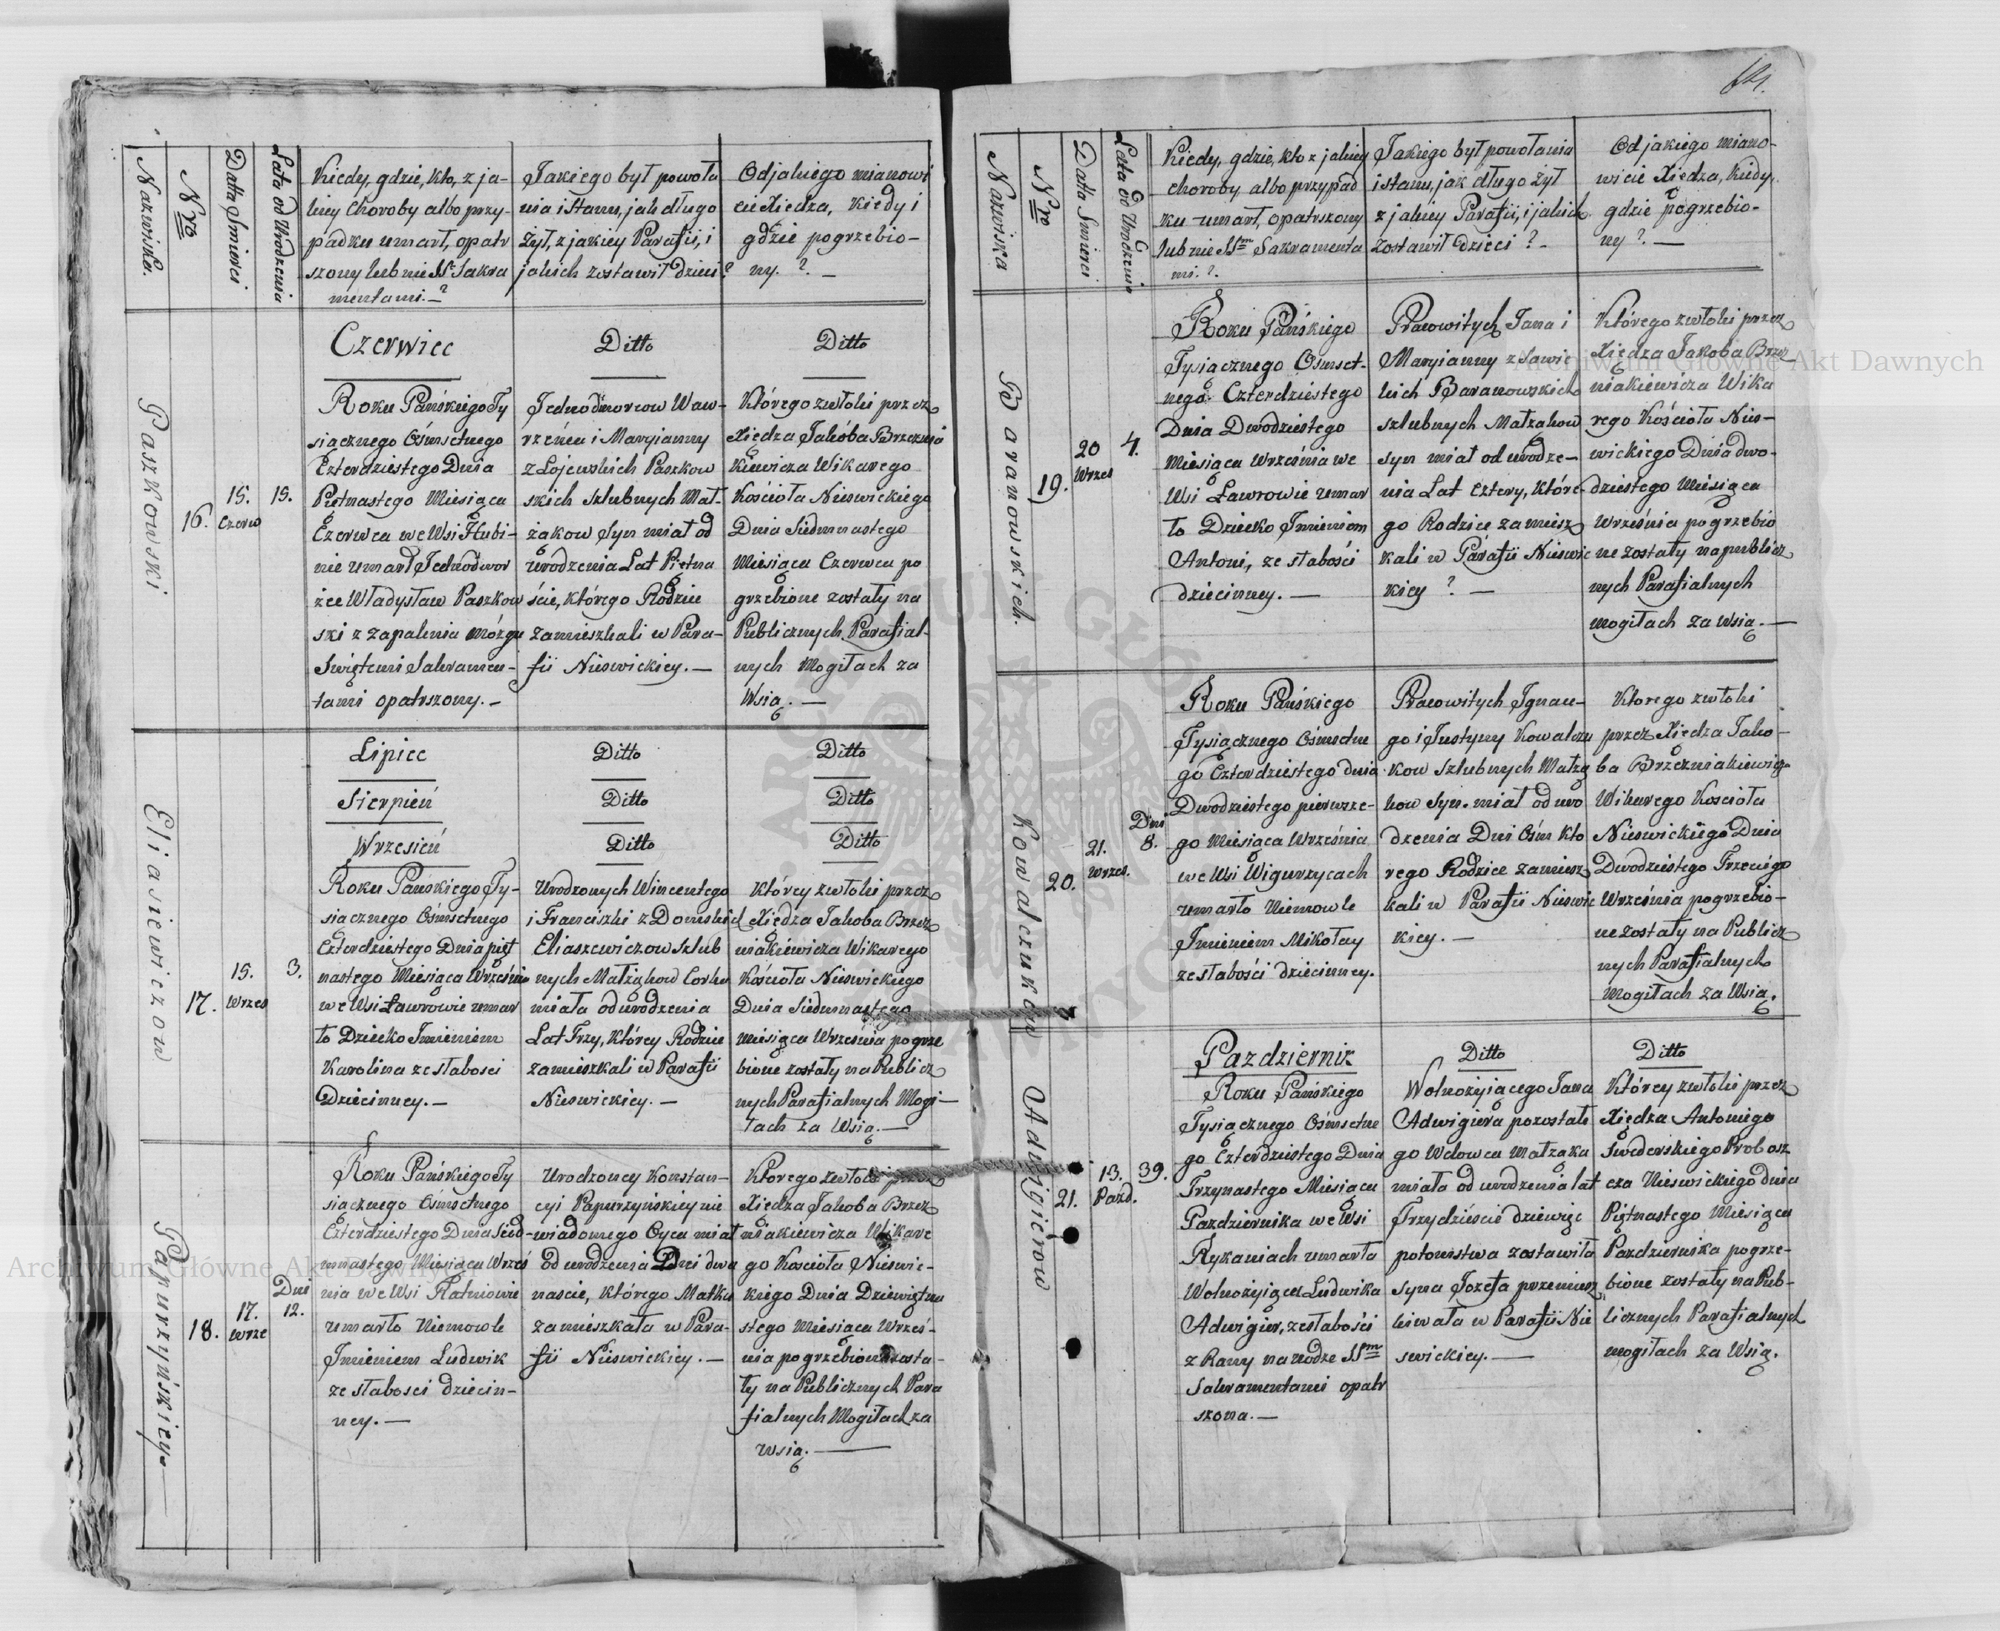 Nazwisko.
Nro
Datta Śmierci
Lata od Urodzenia
Kiedy, gdzie, kto, z ja-
kiey choroby albo przy-
padku umarł, opatr
szony lub nie SS. Sakra
mentami. ?
Jakiego był powoła
nia i stanu, jak długo
żył, z jakiey Parafii, i
jakich zostawił dzieci?
Od jakiego mianowi
cie Xiędza, kiedy i
gdzie pogrzebio-
ny. ? —
Czerwiec
Ditto
Ditto
Paszkowski
16.
15.
Czerw
15.
Roku Pańskiego Ty
siącznego Ośmsetnego
Czterdziestego Dnia
Piętnastego Miesiąca
Czerwca we Wsi Hubi-
nie umarł Jednodwor
zec Władysław Paszkow
ski z zapalenia mózgu
Świętemi Sakramen-
tami opatrszony. —
Jednodworcow Waw-
rzeńca i Maryianny
z Łojewskich Paszkow
skich szlubnych Mał-
żąkow Syn miał od
urodzenia Lat Piętna
ście, którego Rodzice
zamieszkali w Para-
fii Nieswickiey. —
Którego zwłoki przez
Xiędza Jakóba Brzeznia
kiewicza Wikarego
Kościoła Nieswickiego
Dnia Siedmnastego
Miesiąca Czerwca po
grzebione zostały na
Publicznych Parafial-
nych Mogiłach za
Wsią. —
Lipiec
Ditto
Ditto
Sierpień
Ditto
Ditto
Wrzesień
Ditto
Ditto
Eliasiewiczow
17.
15.
Wrzes
3.
Roku Pańskiego Ty-
siącznego Ośmsetnego
Czterdziestego Dnia pięt
nastego Miesiąca Wrześni
we Wsi Ławrowie umar
ło Dziecko Imieniem
Karolina ze słabosci
Dziecinney. —
Urodzonych Wincentego
i Franciszki z Domskich
Eliaszewiczow szlub
nych Małżąkow Corka
miała od urodzenia
Lat Trzy, którey Rodzice
zamieszkali w Parafii
Nieswickiey. —
Którey zwłoki przez
Xiędza Jakoba Brzez
niakiewicza Wikarego
Kościoła Nieswickiego
Dnia Siedmnastego
miesiąca Wrzesnia pogrze
bione zostały na Publicz
nych Parafialnych Mogi-
łach za Wsią. —
Papurzyńskiey
18.
17.
Wrze
Dni
12.
Roku Pańskiego Ty
siącznego Ośmsetnego
Czterdziestego Dnia Sied-
mnastego Miesiąca Wrześ
nia we Wsi Ratniowie
umarło Niemowle
Imieniem Ludwik
ze słabosci dziecin-
ney. —
Urodzoney Konstan-
cyi Papurzyńskiey nie
wiadomego Oyca miał
od urodzenia Dni dwa
naście, którego Matka
zamieszkała w Para-
fii Nieswickiey. —
Ktorego zwłoki przez
Xiędza Jakoba Brzez
niakiewicza Wikare
go Kościoła Nieswic-
kiego Dnia Dziewiętna
stego Miesiąca Wrześ-
nia pogrzebione zosta-
ły na Publicznych Para
fialnych Mogiłach za
wsią. —
Nazwiska
Nro
Datta Śmierci
Lata od Urodzenia
Kiedy, gdzie, kto z jakiey
choroby albo przypad
ku umarł, opatrszony
lub nie SSmi Sakramenta
mi. ?.
Jakiego był powołania
i stanu, jak długo żył
z jakiey Parafii, i jakich
zostawił dzieci ? —
Od jakiego miano-
wicie Xiędza, kiedy,
gdzie pogrzebio-
ny ?. —
Baranowskich.
19.
20
Wrzes
4.
Roku Pańskiego
Tysiącznego Ośmset-
nego Czterdziestego
Dnia Dwodziestego
Miesiąca Września we
Wsi Ławrowie umar
ło Dziecko Imieniem
Antoni, ze słabości
dziecinney. —
Pracowitych Jana i
Maryianny z Sawic
kich Baranowskich
szlubnych Małżakow
syn miał od urodze-
nia Lat Cztery, Które-
go Rodzice zamiesz
kali w Parafii Nieswic
kiey ? —
Którego zwłoki przez
Xiędza Jakoba Brzez
niakiewicza Wika
rego Kościoła Nies-
wickiego Dnia dwo-
dziestego Miesiąca
Września pogrzebio
ne zostały na publicz
nych Parafialnych
mogiłach za Wsią. —
Kowalczukow
20.
21.
Wrzes.
Dni
8.
Roku Pańskiego
Tysiącznego Ośmsetne
go Czterdziestego dnia
Dwodziestego pierwsze-
go Miesiąca Września
we Wsi Wigurzycach
umarło Niemowle
Imieniem Mikołay
ze słabości dziecinney.
Pracowitych Ignac-
go i Justyny Kowalczu
kow szlubnych Małżą
kow Syn. miał od uro
dzenia Dni Ośm kto
rego Rodzice zamiesz
kali w Parafii Nieswic
kiey. —
Ktorego zwłoki
przez Xiędza Jako-
ba Brzezniakiewicza
Wikarego Kościoła
Nieswickiego Dnia
Dwodziestego Trzeciego
Września pogrzebio-
ne zostały na Publicz
nych Parafialnych
Mogiłach za Wsią.
Pazdziernik
Ditto
Ditto
Adwigierow
21.
13.
Pazd.
39.
Roku Pańskiego
Tysiącznego Ośmsetne
go Czterdziestego Dnia
Trzynastego Miesiąca
Pazdziernika we Wsi
Rykaniach umarła
Wolnożyiąca Ludwika
Adwigier, ze słabości
z Rany na nodze SSmi
Sakramentami opatr
szona. —
Wolnożyiącego Jana
Adwigiera pozostałe
go Wdowca Małżąka
miała od urodzenia lat
Trzydzieście dziewięc
potomstwa zostawiła
Syna Jozefa przemiesz
kiwała w Parafii Nie
swickiey. —
Którey zwłoki przez
Xiędza Antoniego
Swederskiego Probosz
cza Nieswickiego dnia
Piętnastego Miesiąca
Pazdziernika pogrze-
bione zostały na Pub-
licznych Parafialnych
mogiłach za Wsią.
Archiwum Główne Akt Dawnych
Archiwum Główne Akt Dawnych